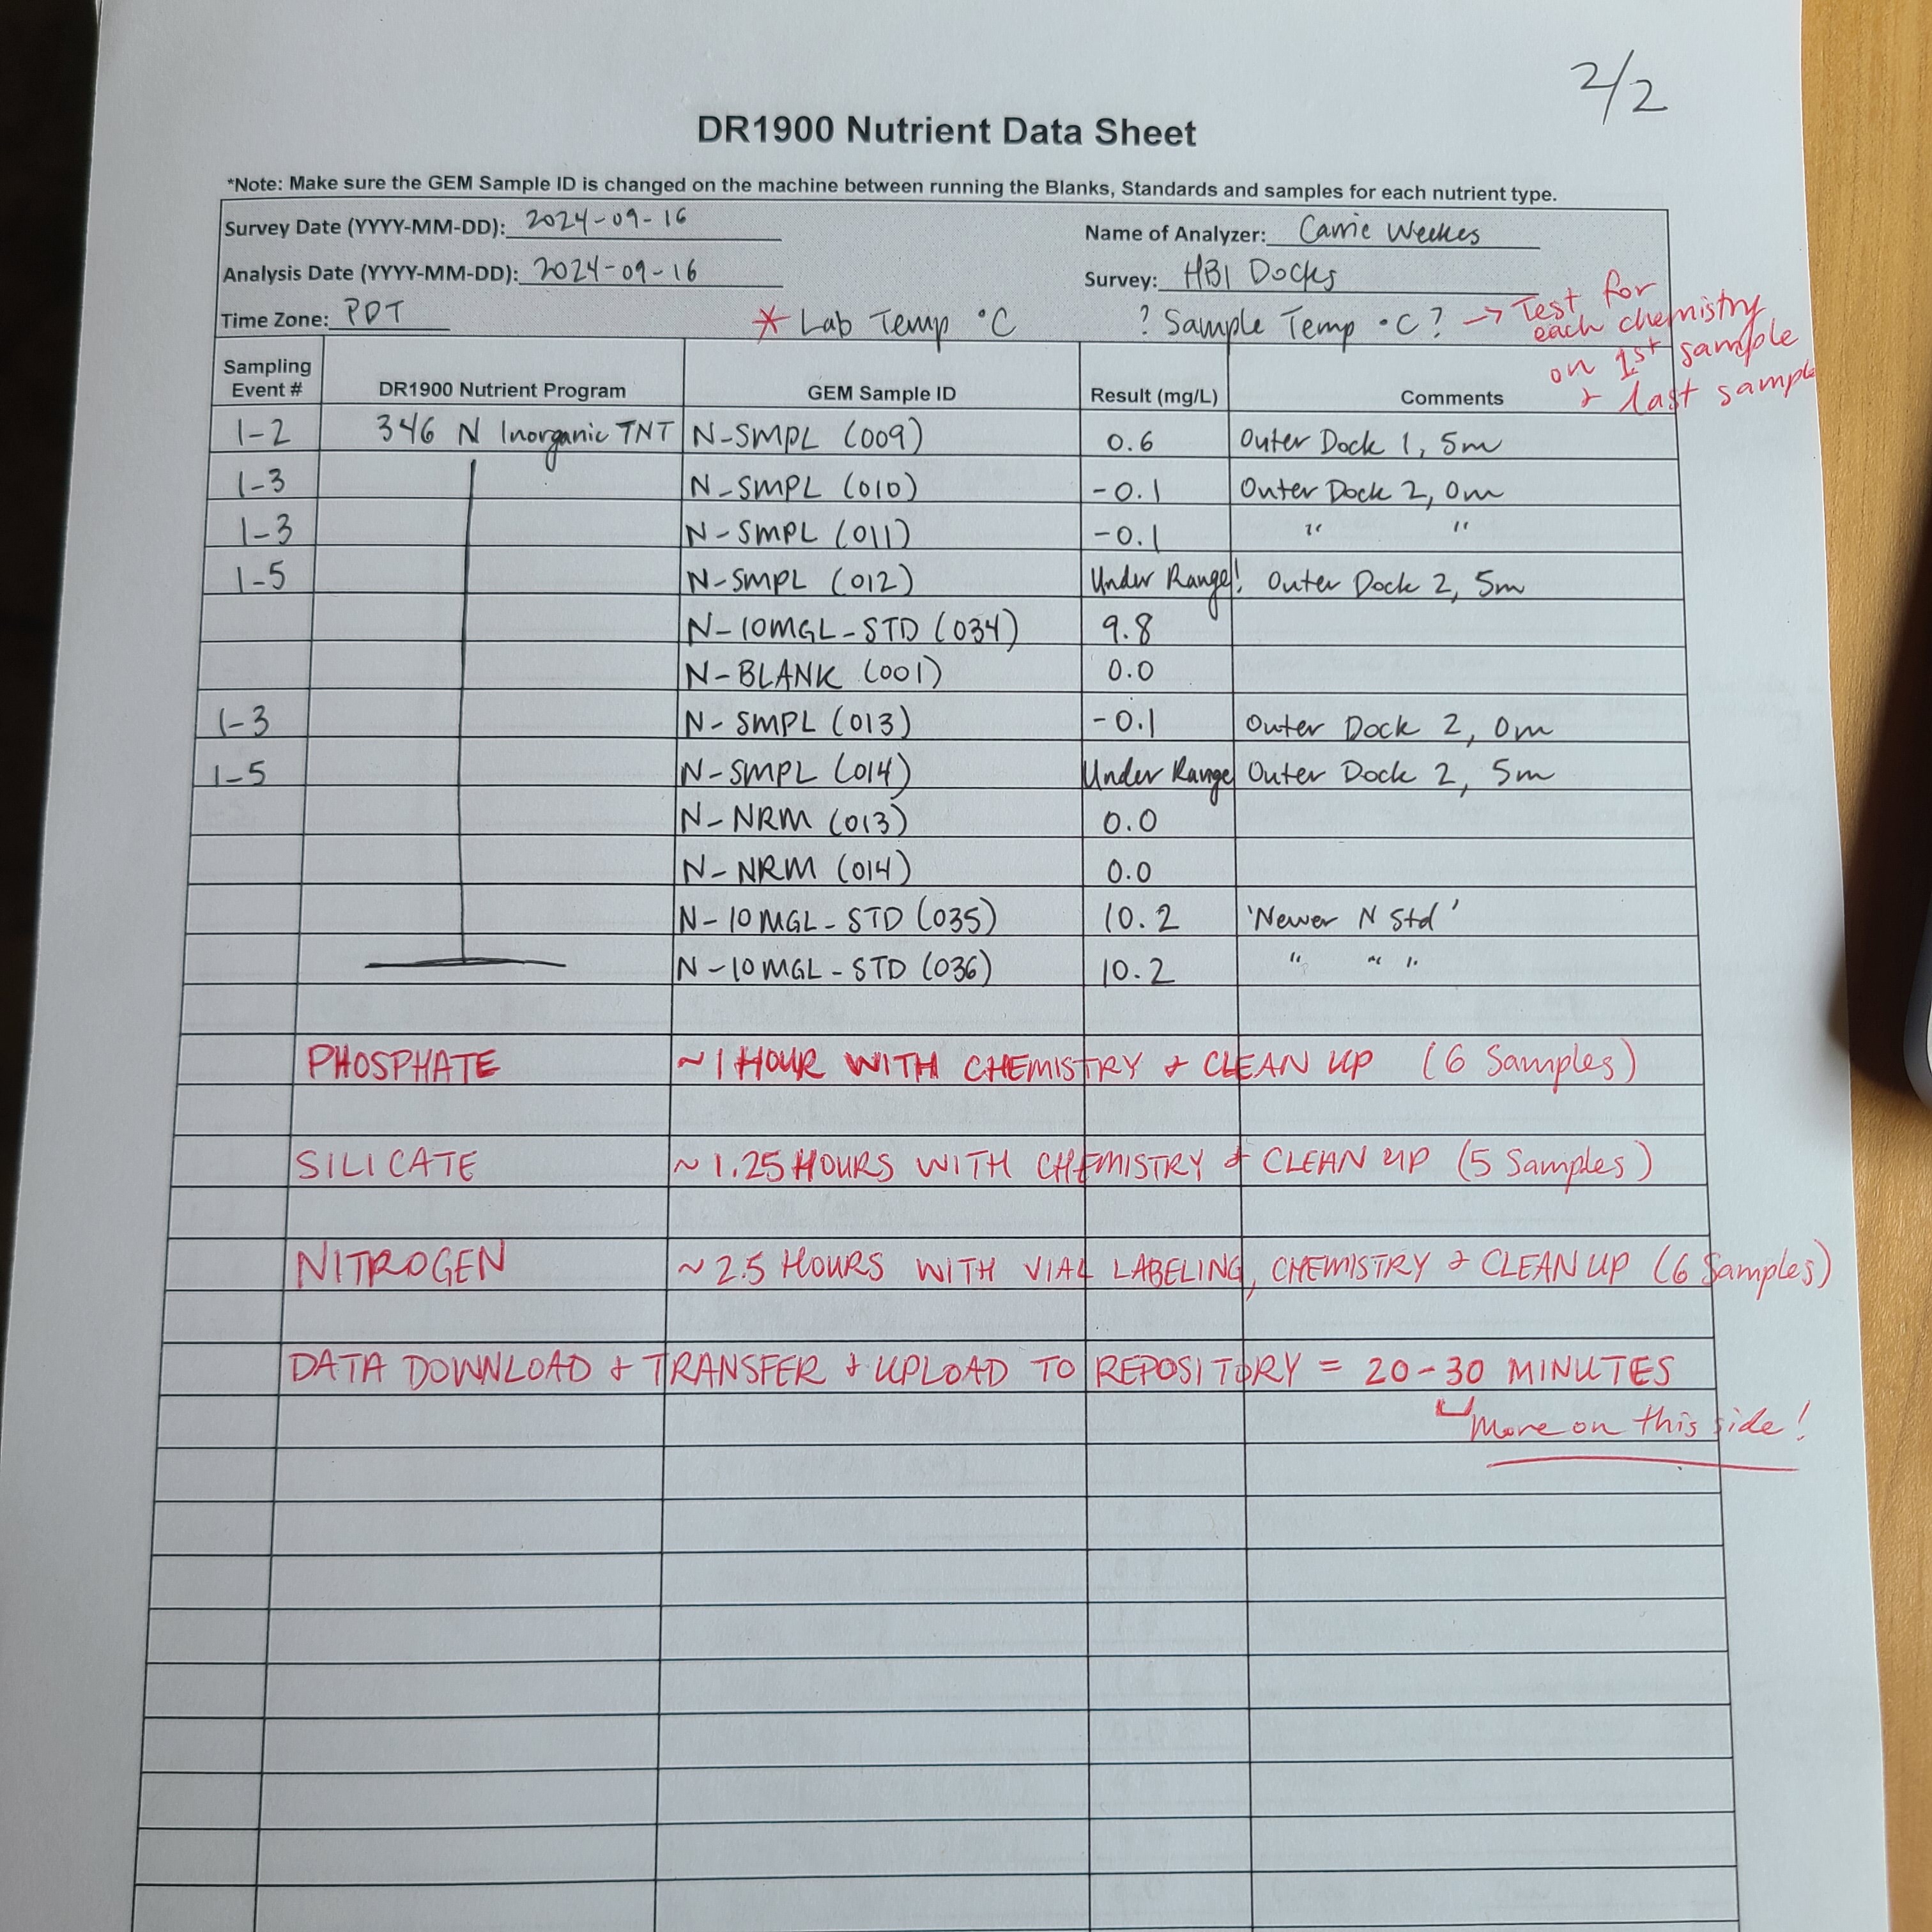 2/2
DR1900 Nutrient Data Sheet
*Note: Make sure the GEM Sample ID is changed on the machine between running the Blanks, Standards and samples for each nutrient type.
Survey Date (YYYY-MM-DD): 2024-09-16 Name of Analyzer: Carrie Weekes
Analysis Date (YYYY-MM-DD): 2024-09-16 Survey: HBI Docks
Time Zone: PDT * Lab Temp °C ? Sample Temp °C? → Test for
each chemistry
on 1st sample
+ last sample
Sampling Event # DR1900 Nutrient Program GEM Sample ID Result (mg/L) Comments
1-2 346 N Inorganic TNT N-SMPL (009) 0.6 Outer Dock 1, 5m
1-3 N-SMPL (010) -0.1 Outer Dock 2, 0m
1-3 N-SMPL (011) -0.1 " "
1-5 N-SMPL (012) Under Range! Outer Dock 2, 5m
N-10MGL-STD (034) 9.8
N-BLANK (001) 0.0
1-3 N-SMPL (013) -0.1 Outer Dock 2, 0m
1-5 N-SMPL (014) Under Range Outer Dock 2, 5m
N-NRM (013) 0.0
N-NRM (014) 0.0
N-10MGL-STD (035) 10.2 'Newer N Std'
N-10MGL-STD (036) 10.2 " " "
PHOSPHATE ~1 HOUR WITH CHEMISTRY + CLEAN UP (6 Samples)
SILICATE ~1.25 HOURS WITH CHEMISTRY + CLEAN UP (5 Samples)
NITROGEN ~2.5 HOURS WITH VIAL LABELING, CHEMISTRY + CLEAN UP (6 Samples)
DATA DOWNLOAD + TRANSFER + UPLOAD TO REPOSITORY = 20-30 MINUTES
More on this side!